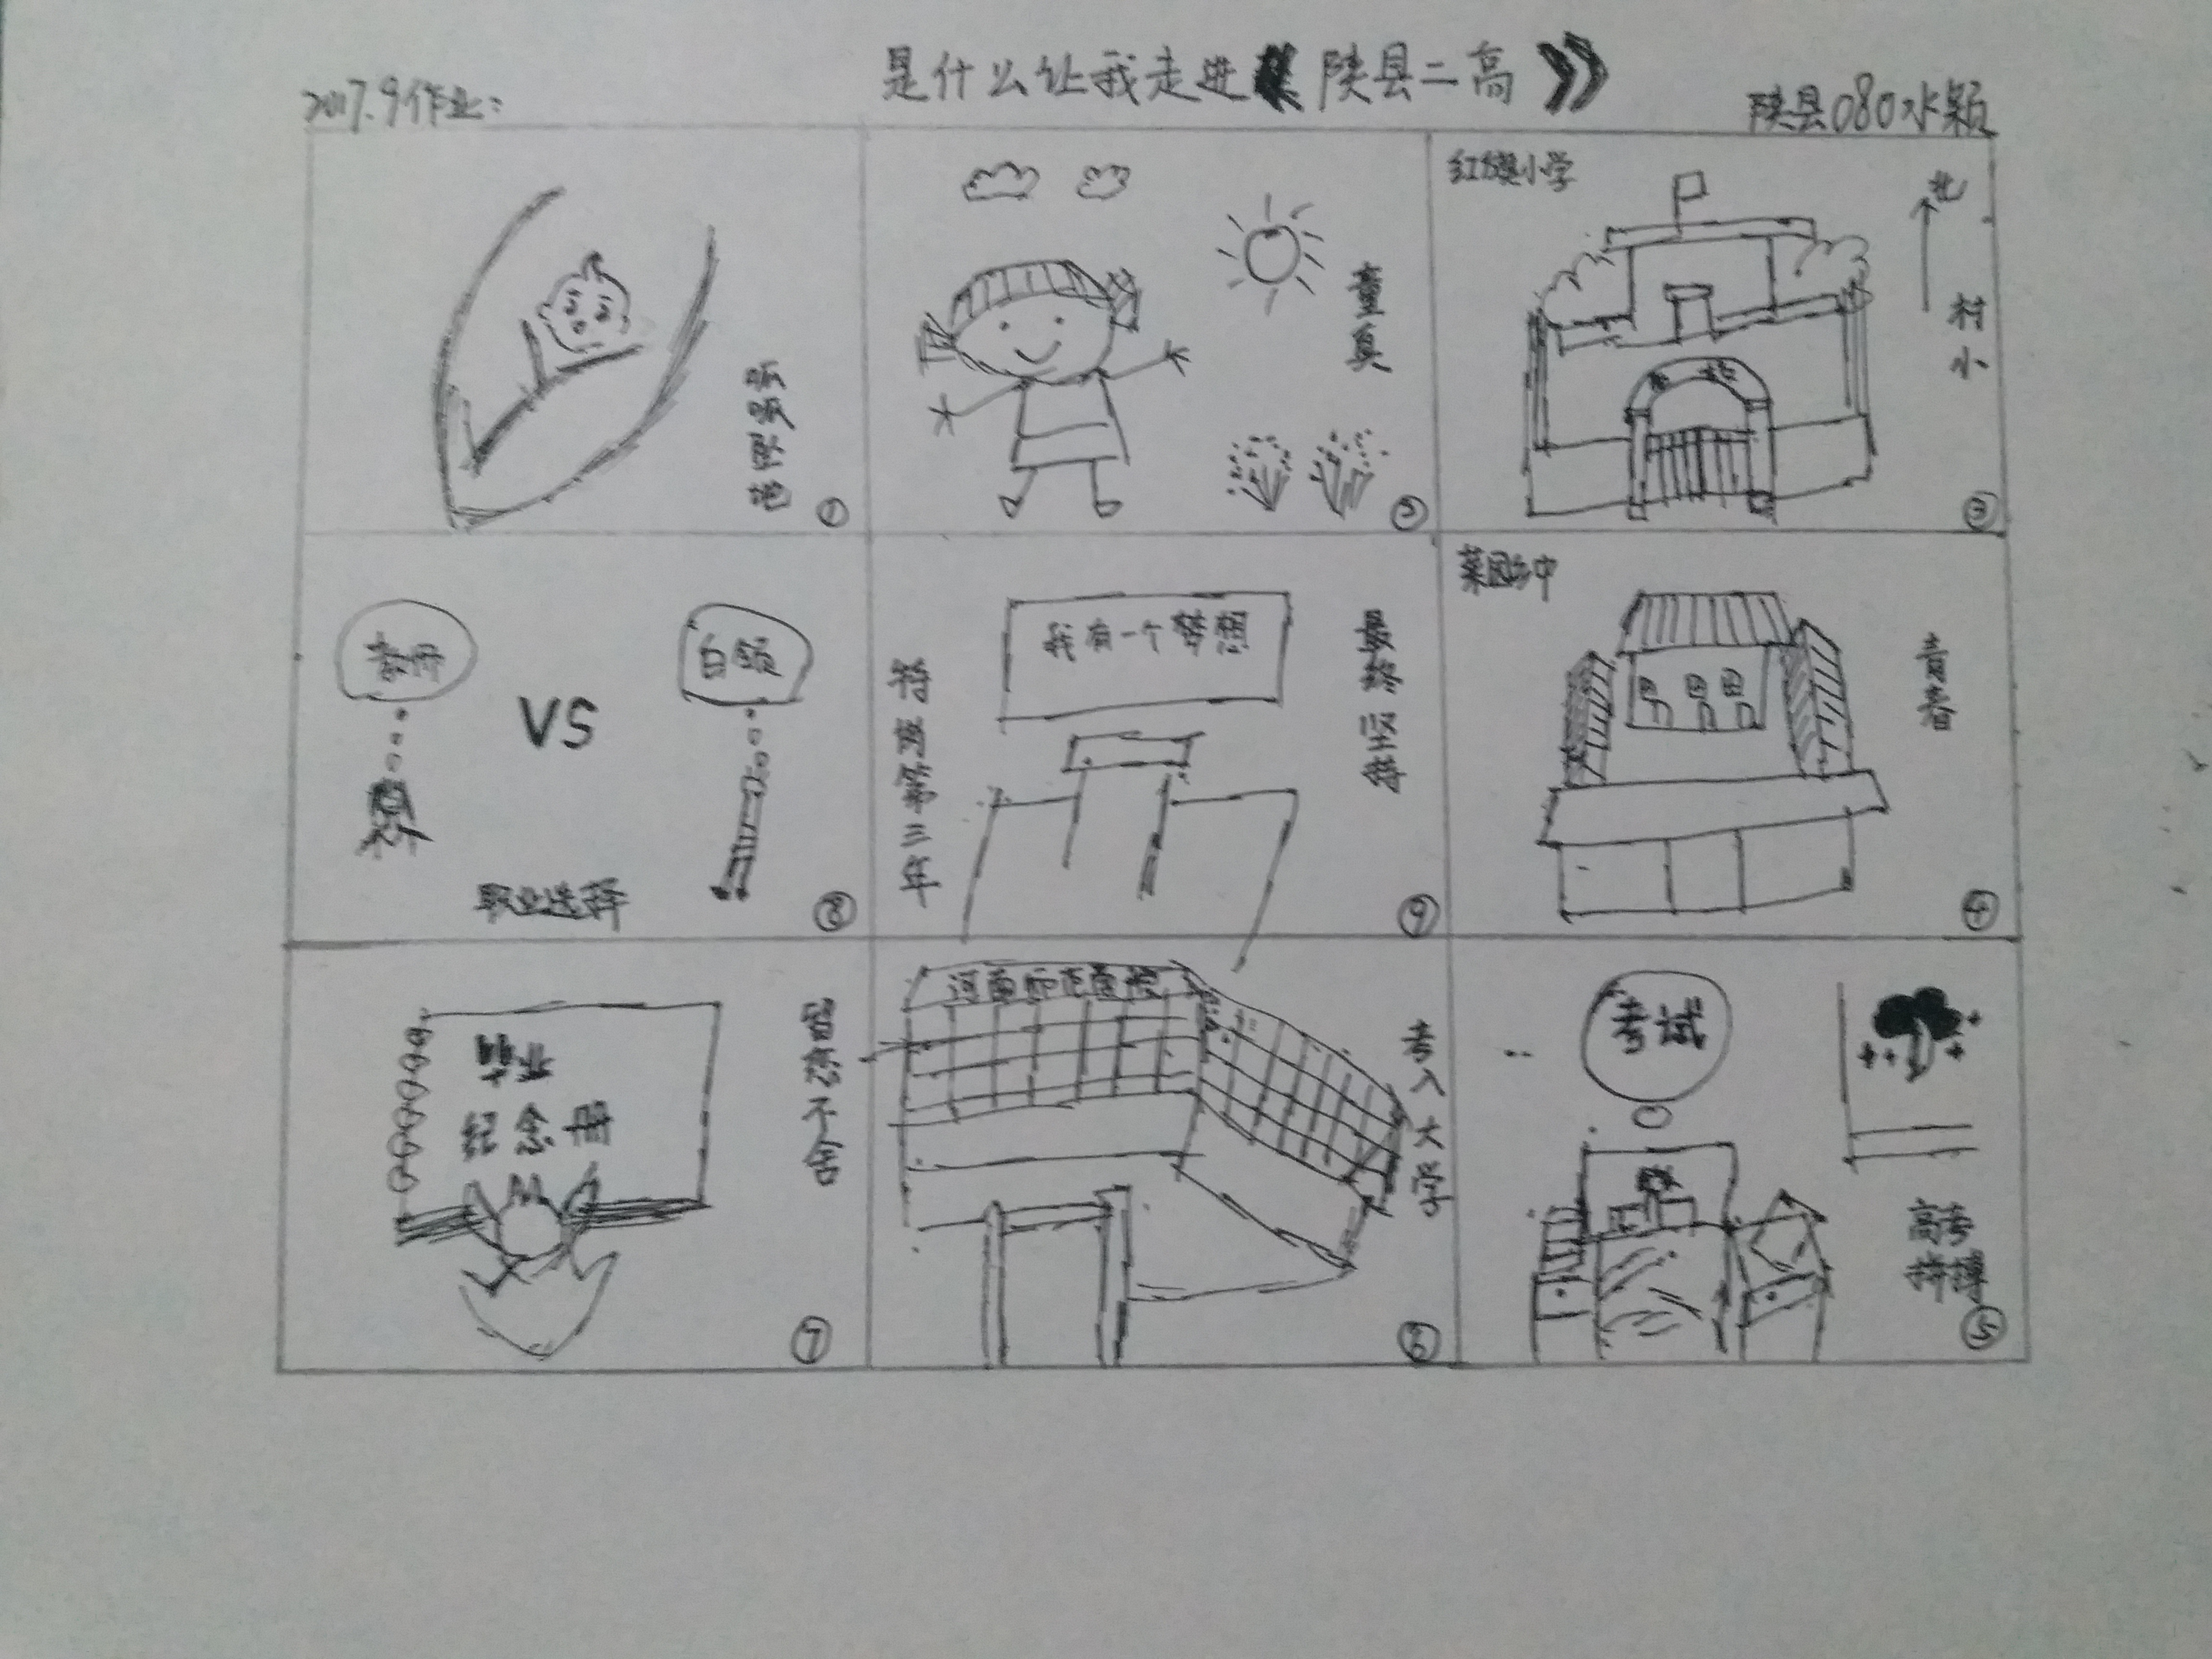 2017.9作业：
是什么让我走进《陕县二高》
陕县080水颖
呱呱坠地
①
童真
②
红旗小学
北
村小
③
教师
VS
白领
职业选择
⑧
我有一个梦想
特岗第三年
最终坚持
⑨
菜园乡中
青春
④
毕业
纪念册
留恋不舍
⑦
河南师范学院
考入大学
⑥
考试
高考
拼搏
⑤